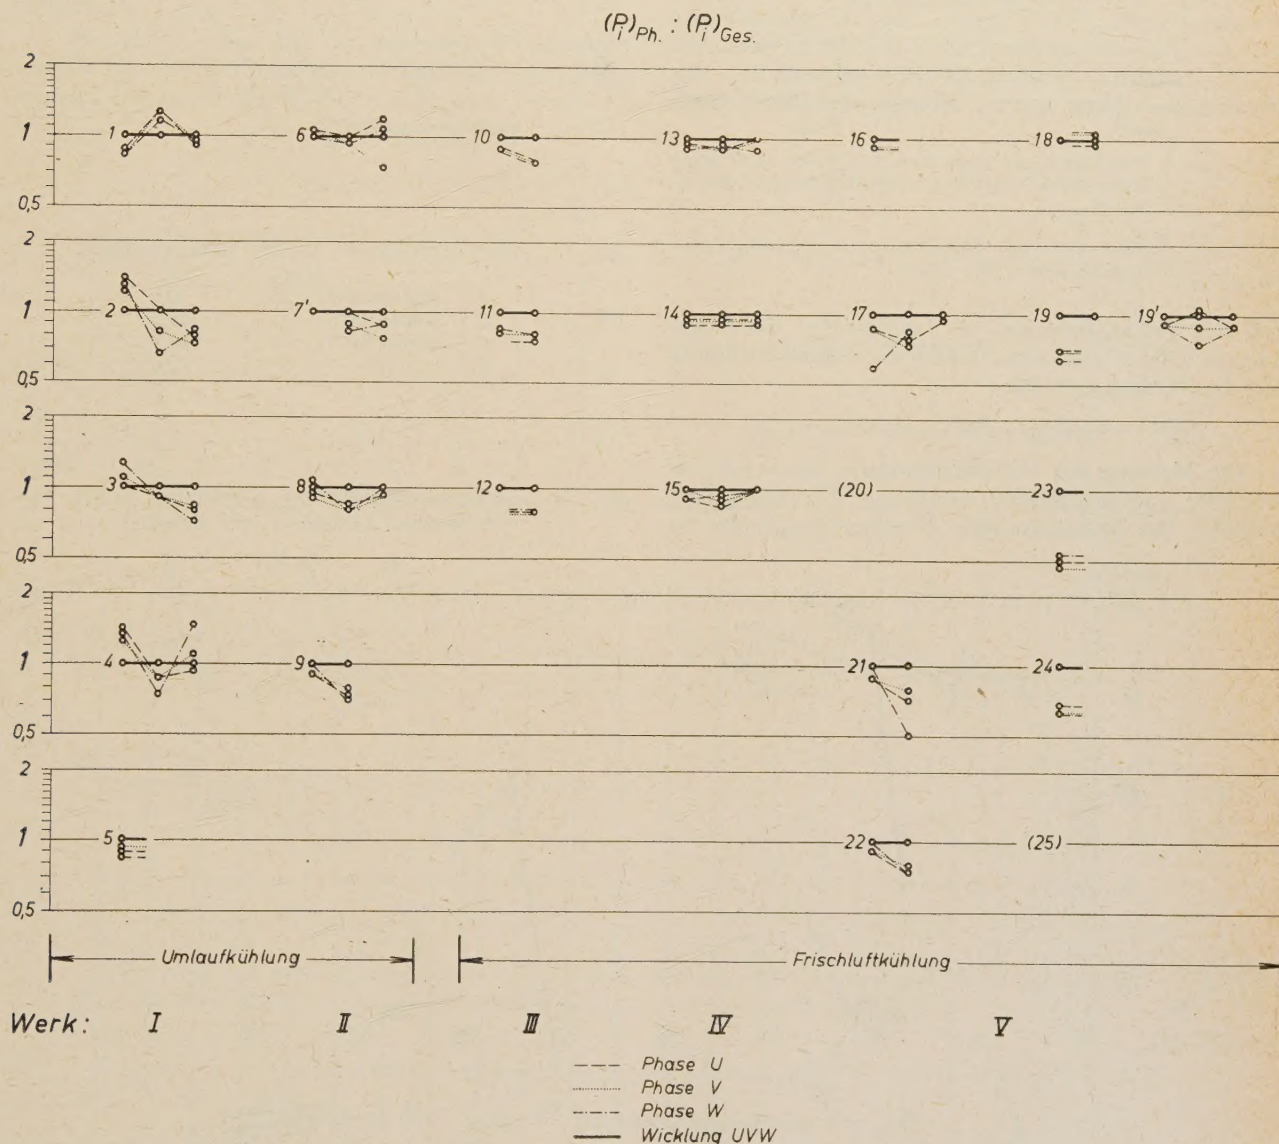 (P_i)_Ph. : (P_i)_Ges.
2
1 1 6 10 13 16 18
0,5
2
1 2 7' 11 14 17 19 19'
0,5
2
1 3 8 12 15 (20) 23
0,5
2
1 4 9 21 24
0,5
2
1 5 22 (25)
0,5
Umlaufkühlung Frischluftkühlung
Werk: I II III IV V
Phase U
Phase V
Phase W
Wicklung UVW